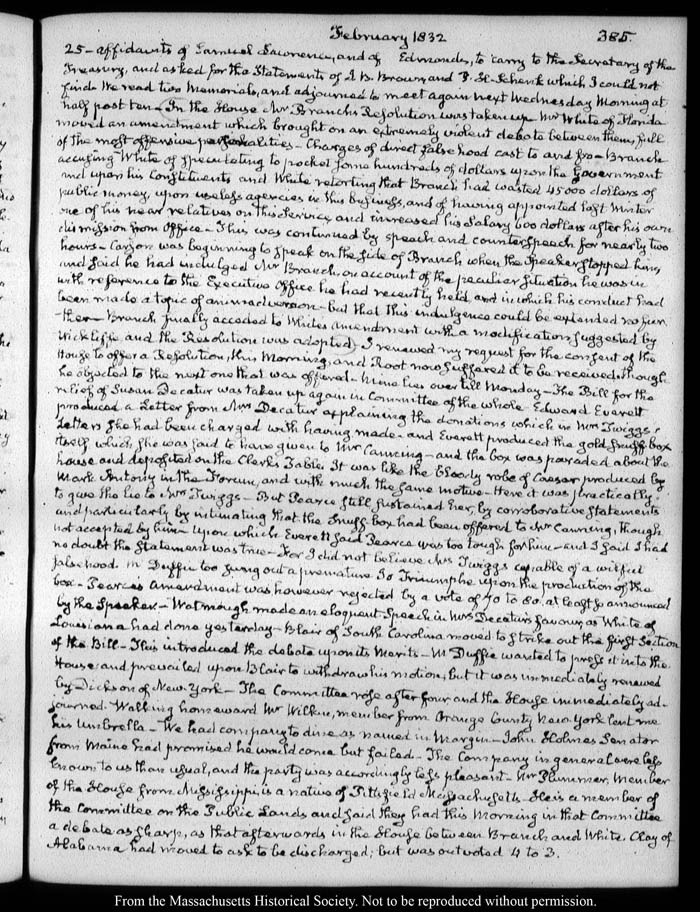 February 1832
385.
25 - affidavits of Samuel Lawrence, and of Edmonds, to carry to the Secretary of the
Treasury, and asked for the Statements of A. B. Brown and P. H. Schenk which I could not
find. We read two Memorials, and adjourned to meet again next Wednesday Morning at
half past ten - In the House Mr Branch's Resolution was taken up - Mr White of Florida
moved an amendment which brought on an extremely violent debate between them, full
of the most offensive personalities - Charges of direct falsehood cast to and fro - Branch
accusing White of speculating to pocket some hundreds of dollars upon the Government
and upon his Constituents and White retorting that Branch had wasted 45000 dollars of
public money, upon useless agencies in this business, and of having appointed last Winter
one of his near relatives on this Service and increased his Salary 600 dollars after his own
dismission from Office - This was continued by speech and counterspeech for nearly two
hours - Carson was beginning to speak on the side of Branch when the Speaker stopped him,
and said he had indulged Mr Branch, on account of the peculiar situation he was in
with reference to the Executive Office he had recently held, and in which his conduct had
been made a topic of animadversion - but that this indulgence could be extended no fur-
-ther - Branch finally acceded to White's amendment with a modification suggested by
Wickliffe and the Resolution was adopted - I renewed my request for the consent of the
House to offer a Resolution, this Morning, and Root now suffered it to be received though
he objected to the next one that was offered - Mine lies over till Monday - The Bill for the
relief of Susan Decatur was taken up again in Committee of the whole. Edward Everett
produced a Letter from Mrs Decatur explaining the donations which in Mrs Twiggs's
Letters she had been charged with having made - and Everett produced the gold snuff-box
itself which she was said to have given to Mr Canning - and the box was paraded about the
house and deposited on the Clerk's Table. It was like the bloody robe of Caesar produced by
Mark Antony in the Forum, and with much the same motive - Here it was practically
to give the lie to Mrs Twiggs - But Pearce still sustained her, by corroborative statements
and particularly by intimating that the Snuff-box had been offered to Mr Canning, though
not accepted by him - Upon which Everett said Pearce was too tough for him - and I said I had
no doubt the Statement was true - For I did not believe Mrs Twiggs capable of a wilful
falsehood. McDuffie too sung out a premature Io Triumphe upon the production of the
box - Pearce's amendment was however rejected by a vote of 70 to 80, at least so announced
by the Speaker - Watmough made an eloquent Speech in Mrs Decatur's favour, as White of
Louisiana had done yesterday - Blair of South Carolina moved to strike out the first Section
of the Bill - This introduced the debate upon its Merits - McDuffie wanted to press it into the
House and prevailed upon Blair to withdraw his motion, but it was immediately renewed
by Dickson of New-York - The Committee rose after four and the House immediately ad-
journed. Walking homeward Mr Wilkin, member from Orange County New York lent me
his Umbrella - We had company to dine as named in Margin - John Holmes Senator
from Maine had promised he would come but failed - The Company in general were less
known to us than usual, and the party was accordingly less pleasant - Mr Plummer, Member
of the House from Mississippi, is a native of Pittsfield Massachusetts - He is a member of
the Committee on the Public Lands and said they had this Morning in that Committee
a debate as sharp, as that afterwards in the House between Branch and White. Clay of
Alabama had moved to ask to be discharged; but was outvoted 4 to 3.
From the Massachusetts Historical Society. Not to be reproduced without permission.